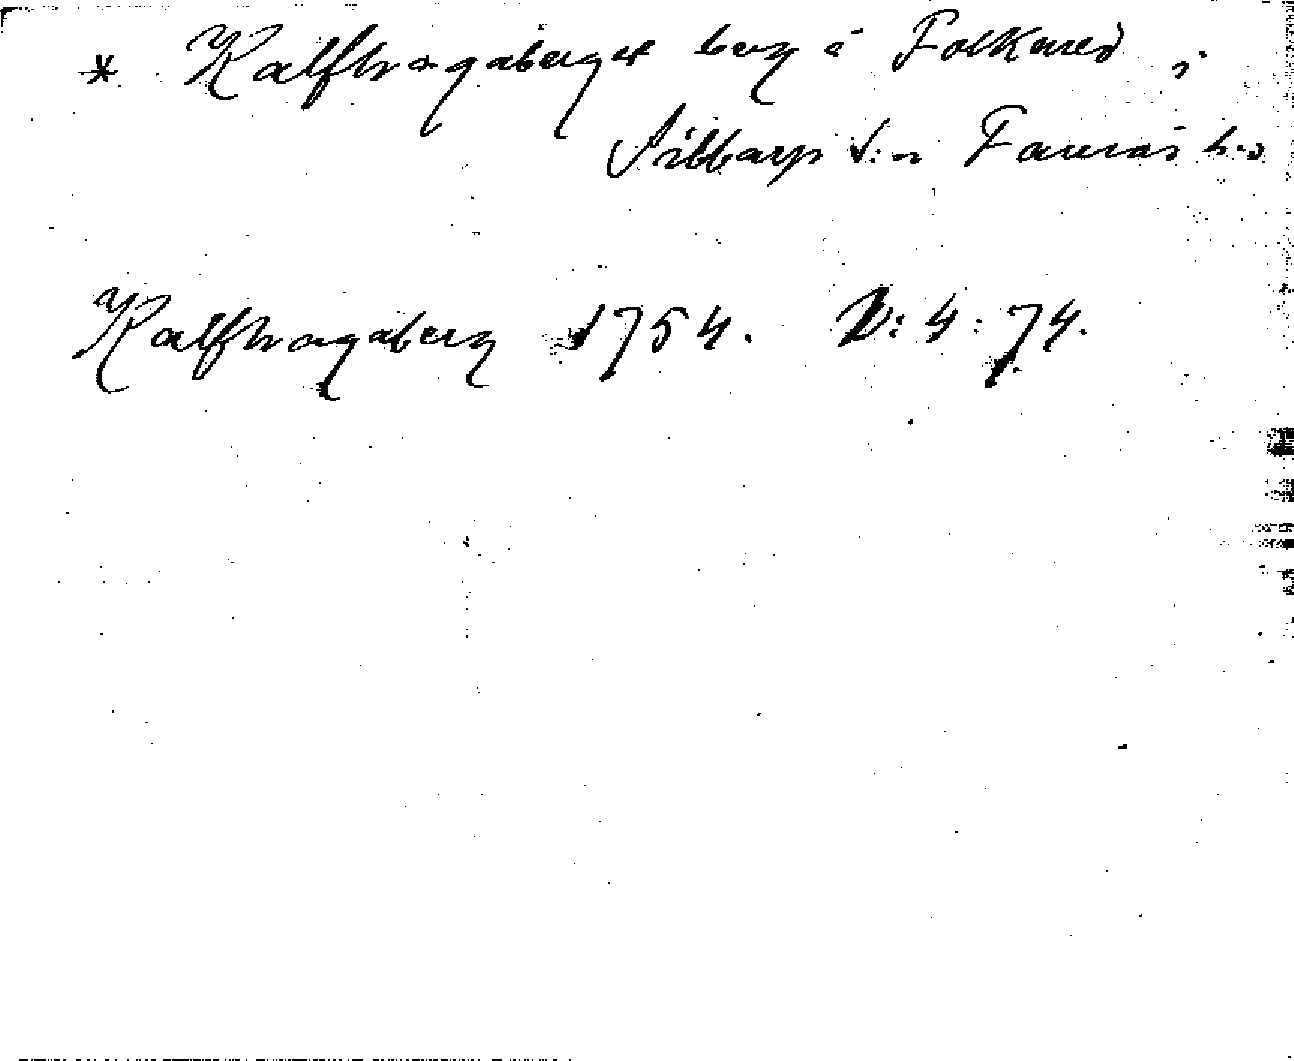 * Kalfhagaberget berg å Folkared i
Sibbarp s:n Faurås h-d
Kalfhagaberg 1754. D: 4: 74.